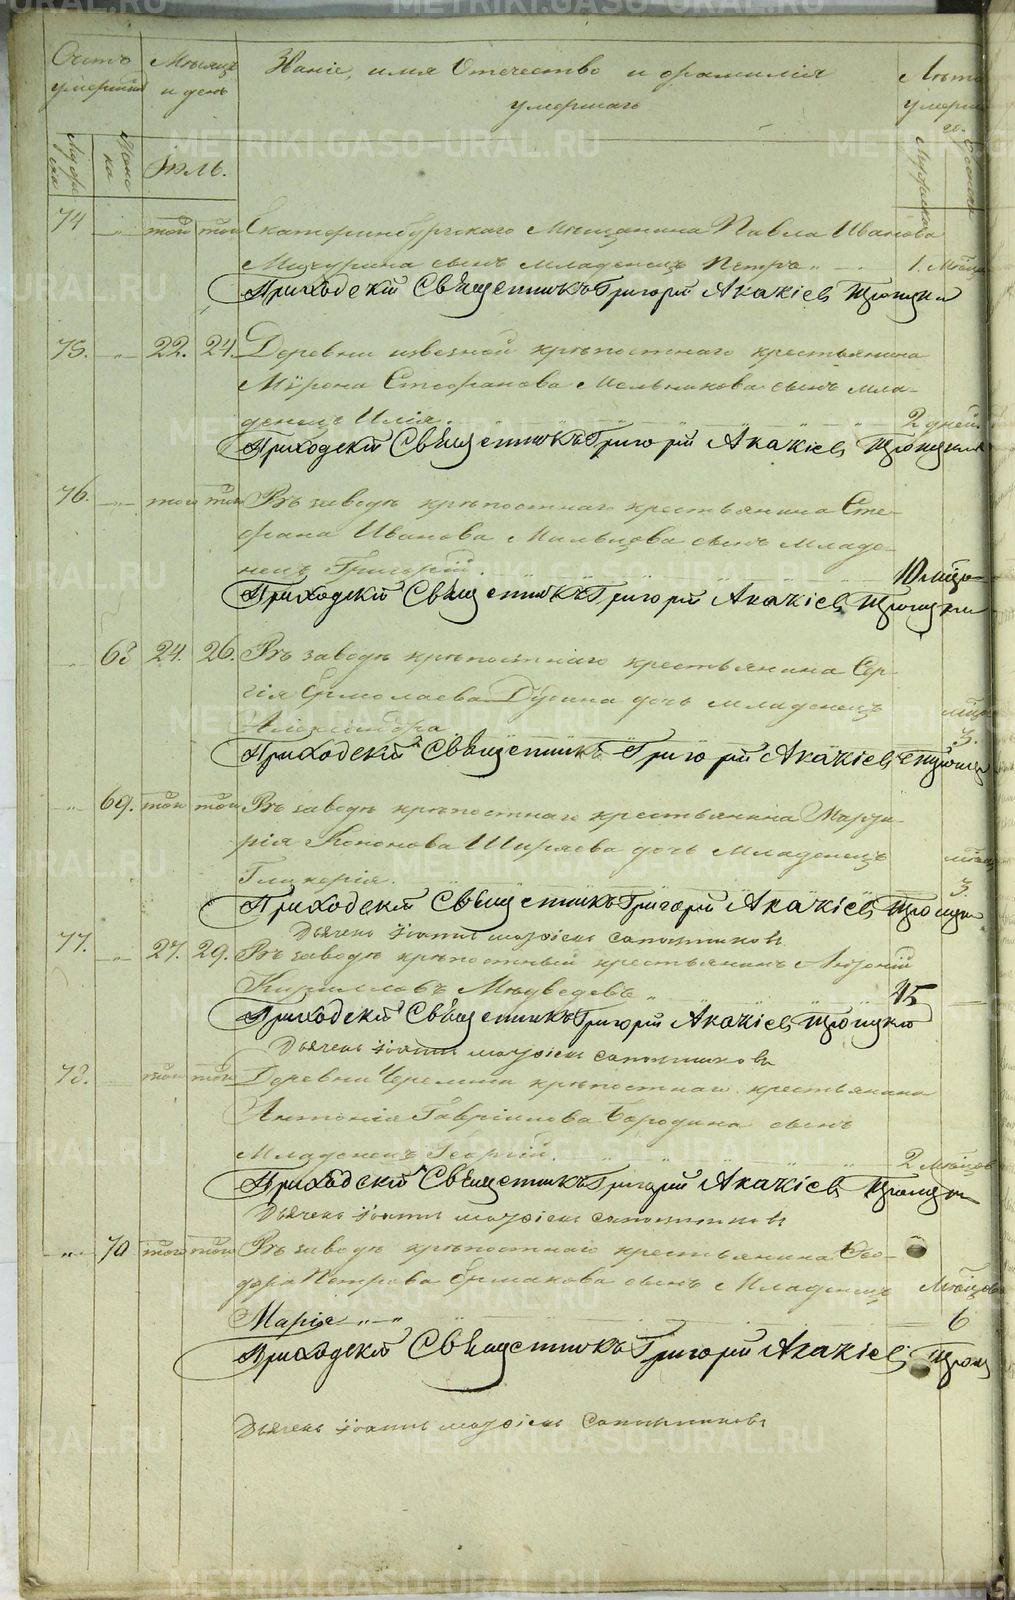 Счетъ умершихъ Мѣсяцъ и день Званіе, имя Отечество и фамилія умершаго Лѣта умерша го.
Мужеска Женска Іюль. Мужеска
74 " той той Екатеринбургскаго Мѣщанина Павла Иванова
Мичурина сынъ младенецъ Петръ " 1. Мѣсяц
Приходскій Священникъ Григорій Акакіевъ Троицкій
75. " 22. 24. Деревни крѣпостнаго крестьянина
Мѵрона Стефанова Мельникова сынъ мла-
денецъ Илія. 2 дней.
Приходскій Священникъ Григорій Акакіевъ Троицкій
76. " того того Въ заводѣ крѣпостнаго крестьянина Сте-
фана Иванова сынъ Младе-
нецъ Григорій. 10 мѣся
Приходскій Священникъ Григорій Акакіевъ Троицкій
" 68 24. 26. Въ заводѣ крѣпостнаго крестьянина Сер-
гія Ермолаева Дубина дочь младенецъ мѣся
Александра 3.
Приходскій Священникъ Григорій Акакіевъ Троицк
" 69. той той Въ заводѣ крѣпостнаго крестьянина Марти-
рія Кононова Ширяева дочь Младенецъ мѣсяц
Гликерія. 3
Приходскій Священникъ Григорій Акакіевъ Троицкі
Дьячекъ Іоаннъ Сапожниковъ
77. " 27. 29. Въ заводѣ крѣпостный крестьянинъ
Кирилловъ Медведевъ " 45
Приходскій Священникъ Григорій Акакіевъ Троицкій
Дьячекъ Іоаннъ Сапожниковъ
78. той той Деревни крѣпостнаго крестьянина
Антонія Гавріилова Бородина сынъ
Младенецъ Георгій. 2 мѣсяцов
Приходскій Священникъ Григорій Акакіевъ Троицкій
Дьячекъ Іоаннъ Сапожниковъ
" 70 того того Въ заводѣ крѣпостнаго крестьянина Фео-
дора Петрова Ермакова сынъ Младенецъ Мѣсяцовъ
Марія " " 6
Приходскій Священникъ Григорій Акакіевъ Троиц
Дьячекъ Іоаннъ Сапожниковъ
METRIKI.GASO-URAL.RU